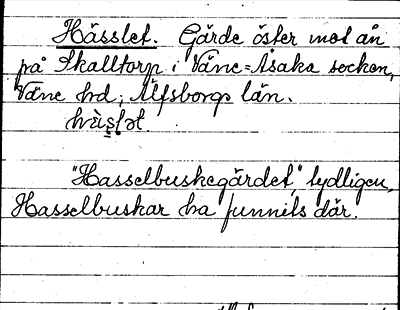 Hässlet. Gärde öster mot ån
på Skalltorp i Väne-Åsaka socken,
Väne hd; Älfsborgs län.
"Hasselbuskegärdet," tydligen,
Hasselbuskar ha funnits där.